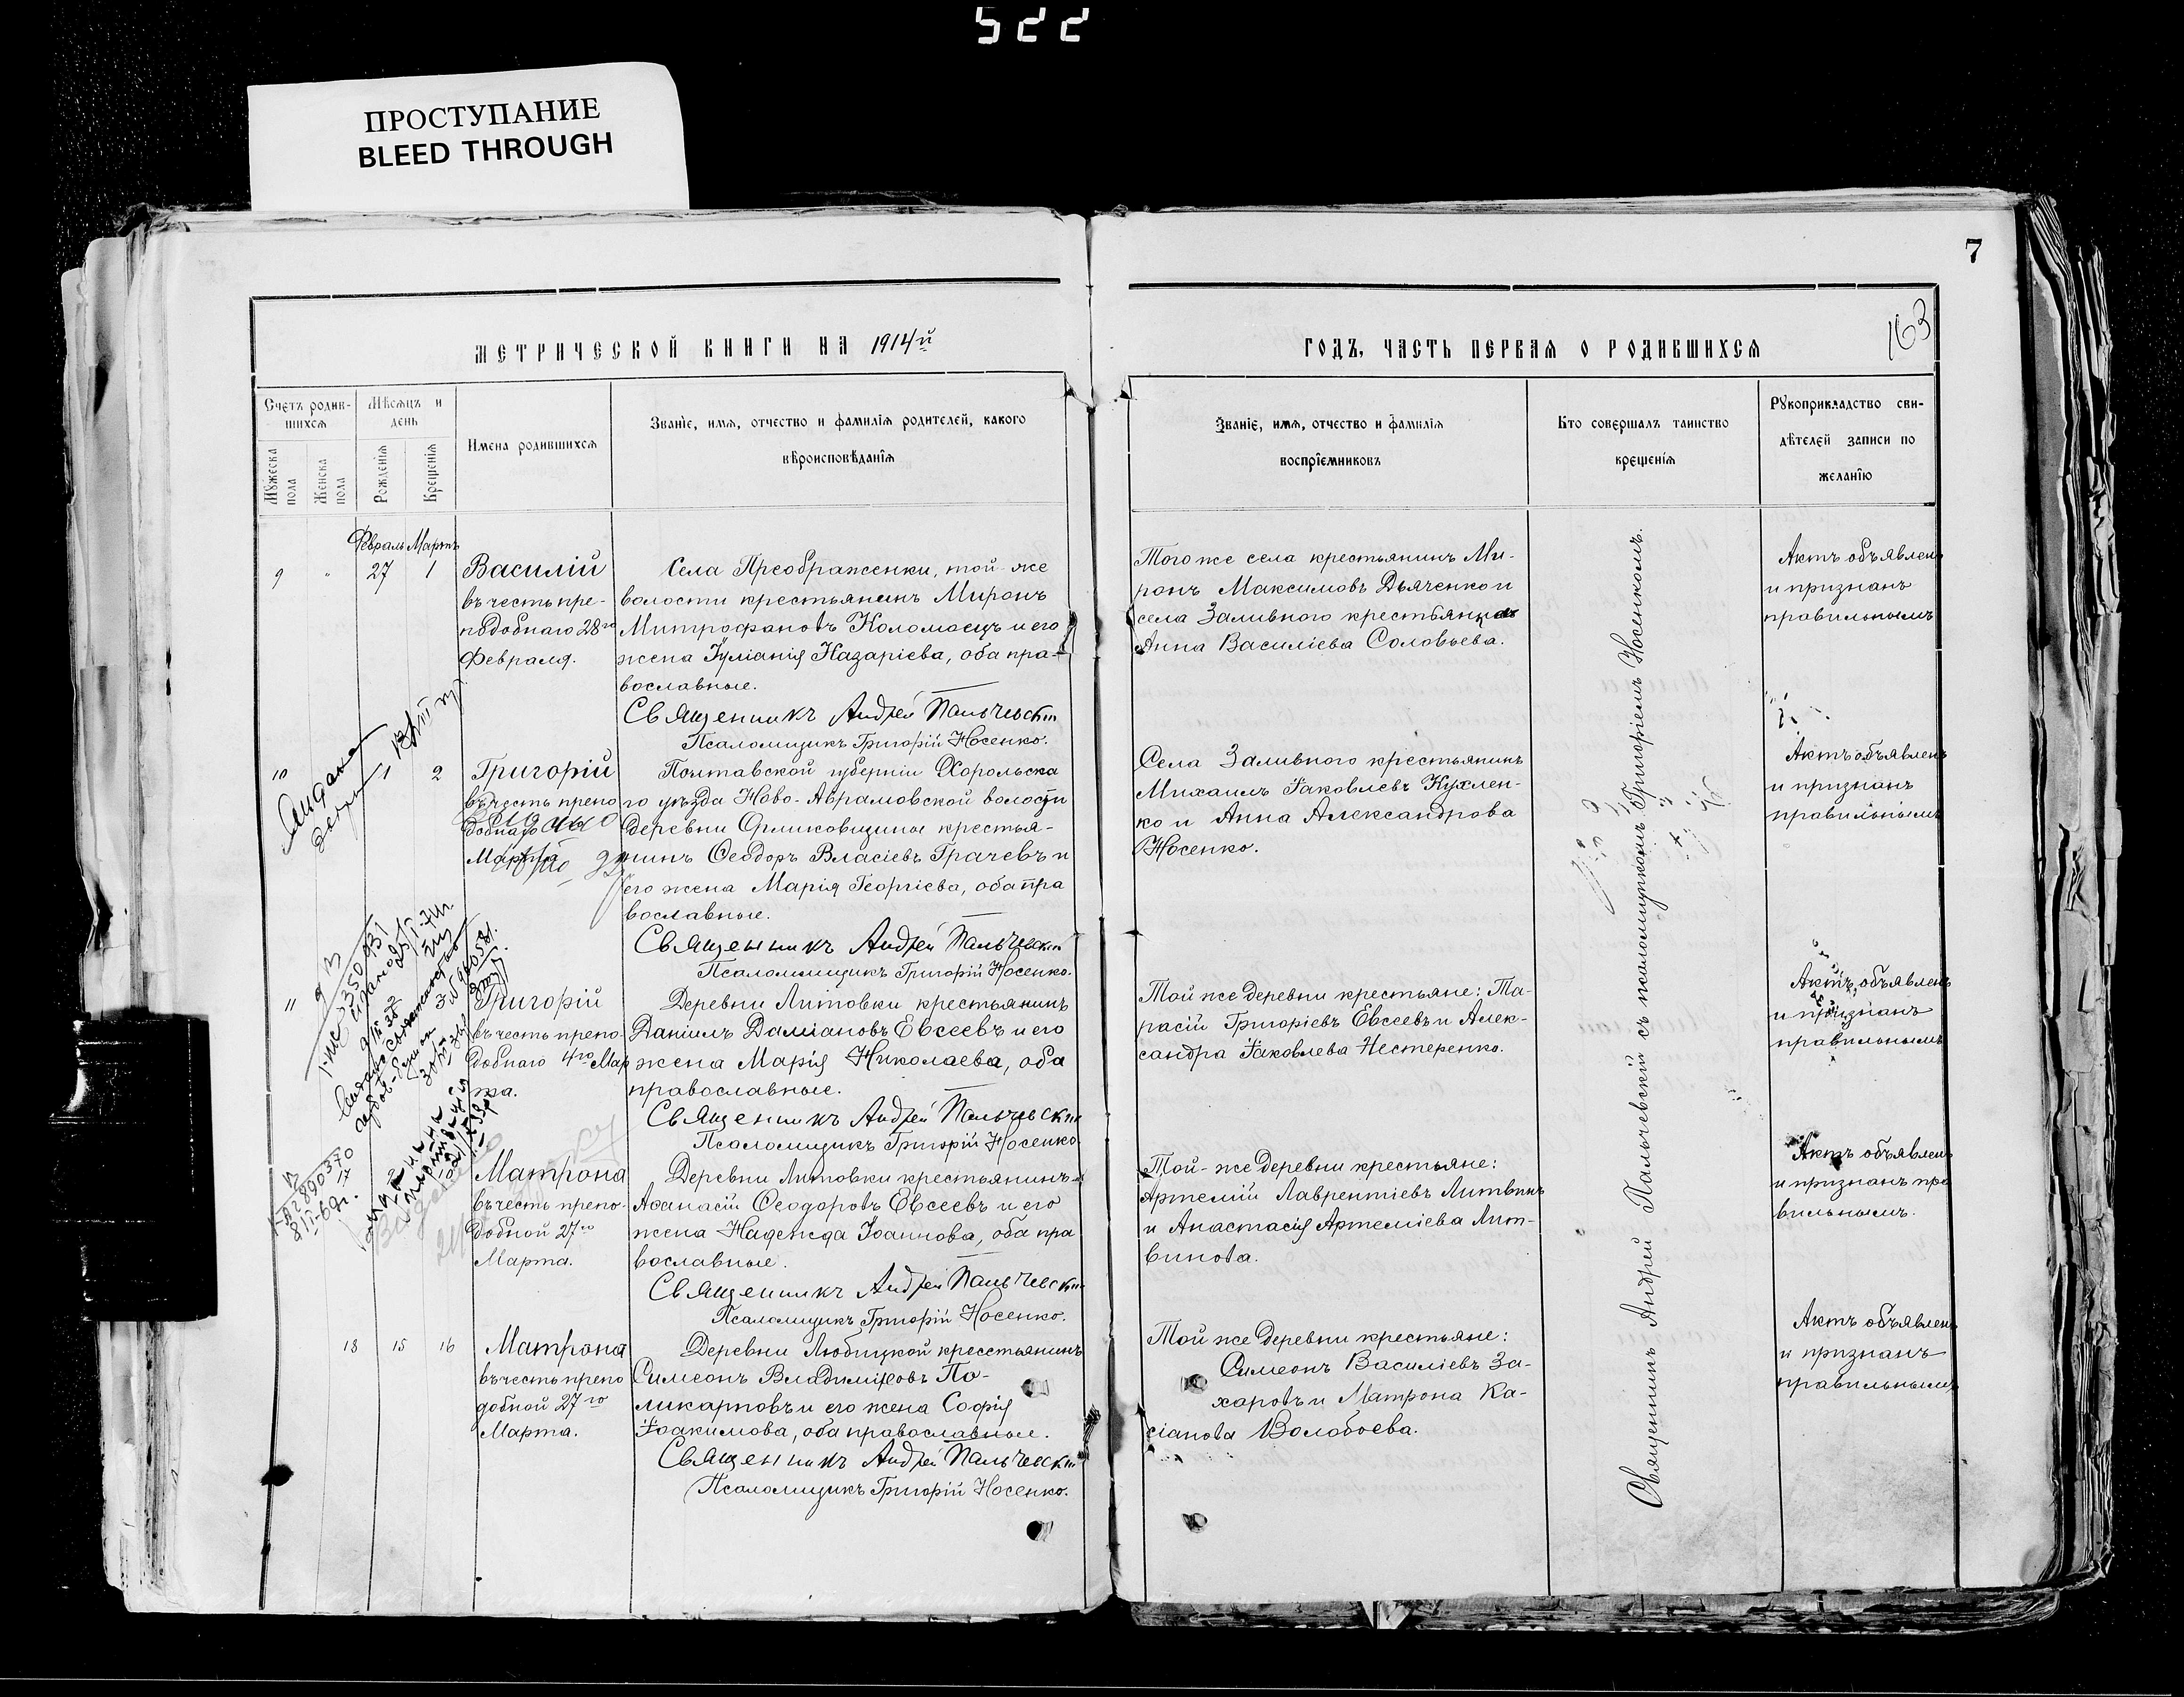 522
ПРОСТУПАНИЕ
BLEED THROUGH
7
163
МЕТРИЧЕСКОЙ КНИГИ НА 1914й
ГОДЪ, ЧАСТЬ ПЕРВАЯ О РОДИВШИХСЯ
Счетъ родив-
шихся
Мѣсяцъ и
день
Мужеска
пола
Женска
пола
Рожденія
Крещенія
Имена родившихся
Званіе, имя, отчество и фамилія родителей, какого
вѣроисповѣданія
Званіе, имя, отчество и фамилія
воспріемниковъ
Кто совершалъ таинство
крещенія
Рукоприкладство сви-
дѣтелей записи по
желанію
Февраль Мартъ
9 " 27 1
Василій
въ честь пре-
подобнаго 28го
Февраля.
Села Преображенки, той-же
волости крестьянинъ Миронъ
Митрофановъ Коломоецъ и его
жена Іуліанія Назаріева, оба пра-
вославные.
Священникъ Андрей Пальчевскій
Псаломщикъ Григорій Носенко.
Того же села крестьянинъ Ми-
ронъ Максимовъ Дьяченко и
села Заливного крестьянка
Анна Василіева Соловьева.
Актъ объявленъ
и признанъ
правильнымъ
10 1 2
Григорій
въ честь препо
добнаго
Марта
Полтавской губерніи Хорольска
го уѣзда Ново-Аврамовской волости
деревни Орликовщины крестья-
нинъ Ѳеодоръ Власіевъ Грачевъ и
его жена Марія Георгіева, оба пра
вославные.
Священникъ Андрей Пальчевскій
Псаломщикъ Григорій Носенко.
Села Заливного крестьянинъ
Михаилъ Іаковлевъ Кухлен-
ко и Анна Александрова
Носенко.
Актъ объявленъ
и признанъ
правильнымъ
11 3
Григорій
въ честь препо-
добнаго 4го Мар
та.
Деревни Литовки крестьянинъ
Даніилъ Даміановъ Евсеевъ и его
жена Марія Николаева, оба
православные.
Священникъ Андрей Пальчевскій
Псаломщикъ Григорій Носенко
Той же деревни крестьяне: Та-
расій Григоріевъ Евсеевъ и Алек-
сандра Іаковлева Нестеренко.
Актъ объявленъ
и признанъ
правильнымъ
Матрона
въ честь препо-
добной 27го
Марта.
Деревни Литовки крестьянинъ
Аѳанасій Ѳеодоровъ Евсеевъ и его
жена Надежда Іоаннова, оба пра
вославные.
Священникъ Андрей Пальчевскій
Псаломщикъ Григорій Носенко.
Той-же деревни крестьяне:
Артемій Лаврентіевъ Литвинъ
и Анастасія Артеміева Лит-
винова.
Актъ объявленъ
и признанъ пра
вильнымъ.
13 15 16
Матрона
въ честь препо
добной 27го
Марта.
Деревни Любицкой крестьянинъ
Симеонъ Владиміровъ По-
ликарповъ и его жена Софія
Іоакимова, оба православные.
Священникъ Андрей Пальчевскій
Псаломщикъ Григорій Носенко.
Той же деревни крестьяне:
Симеонъ Василіевъ За-
харовъ и Матрона Ка-
сіанова Волобоева.
Актъ объявленъ
и признанъ
правильнымъ
Священникъ Андрей Пальчевскій съ псаломщикомъ Григоріемъ Носенкомъ.